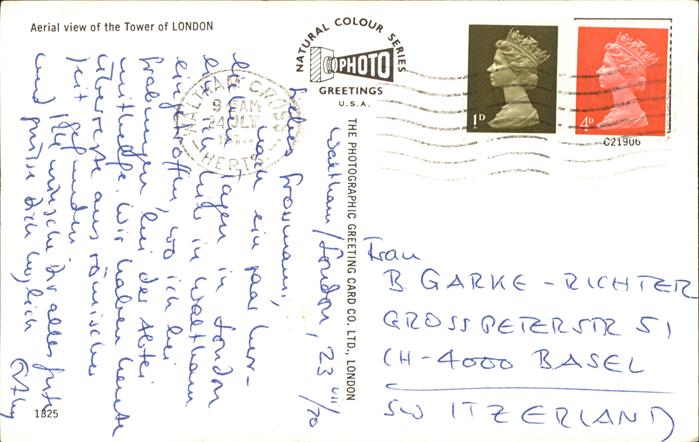 Aerial view of the Tower of LONDON
NATURAL COLOUR SERIES
PHOTO
GREETINGS
U.S.A.
THE PHOTOGRAPHIC GREETING CARD CO. LTD., LONDON
1825
WALTHAM CROSS
9 AM
24 JLY
HERTS
1D
4D
C21906
Waltham/London, 23 VII/70
Liebes Grossmami,
nach ein paar herr-
lichen Tagen in London
bin ich in Waltham
eingetroffen, wo ich bei
Grabungen bei der Abtei
mithelfe. Wir haben heute
Überreste aus römischer
Zeit gefunden.
Ich wünsche Dir alles Gute
und grüsse Dich herzlich
Frau
B GARKE-RICHTER
GROSSPETERSTR 51
CH-4000 BASEL
SWITZERLAND